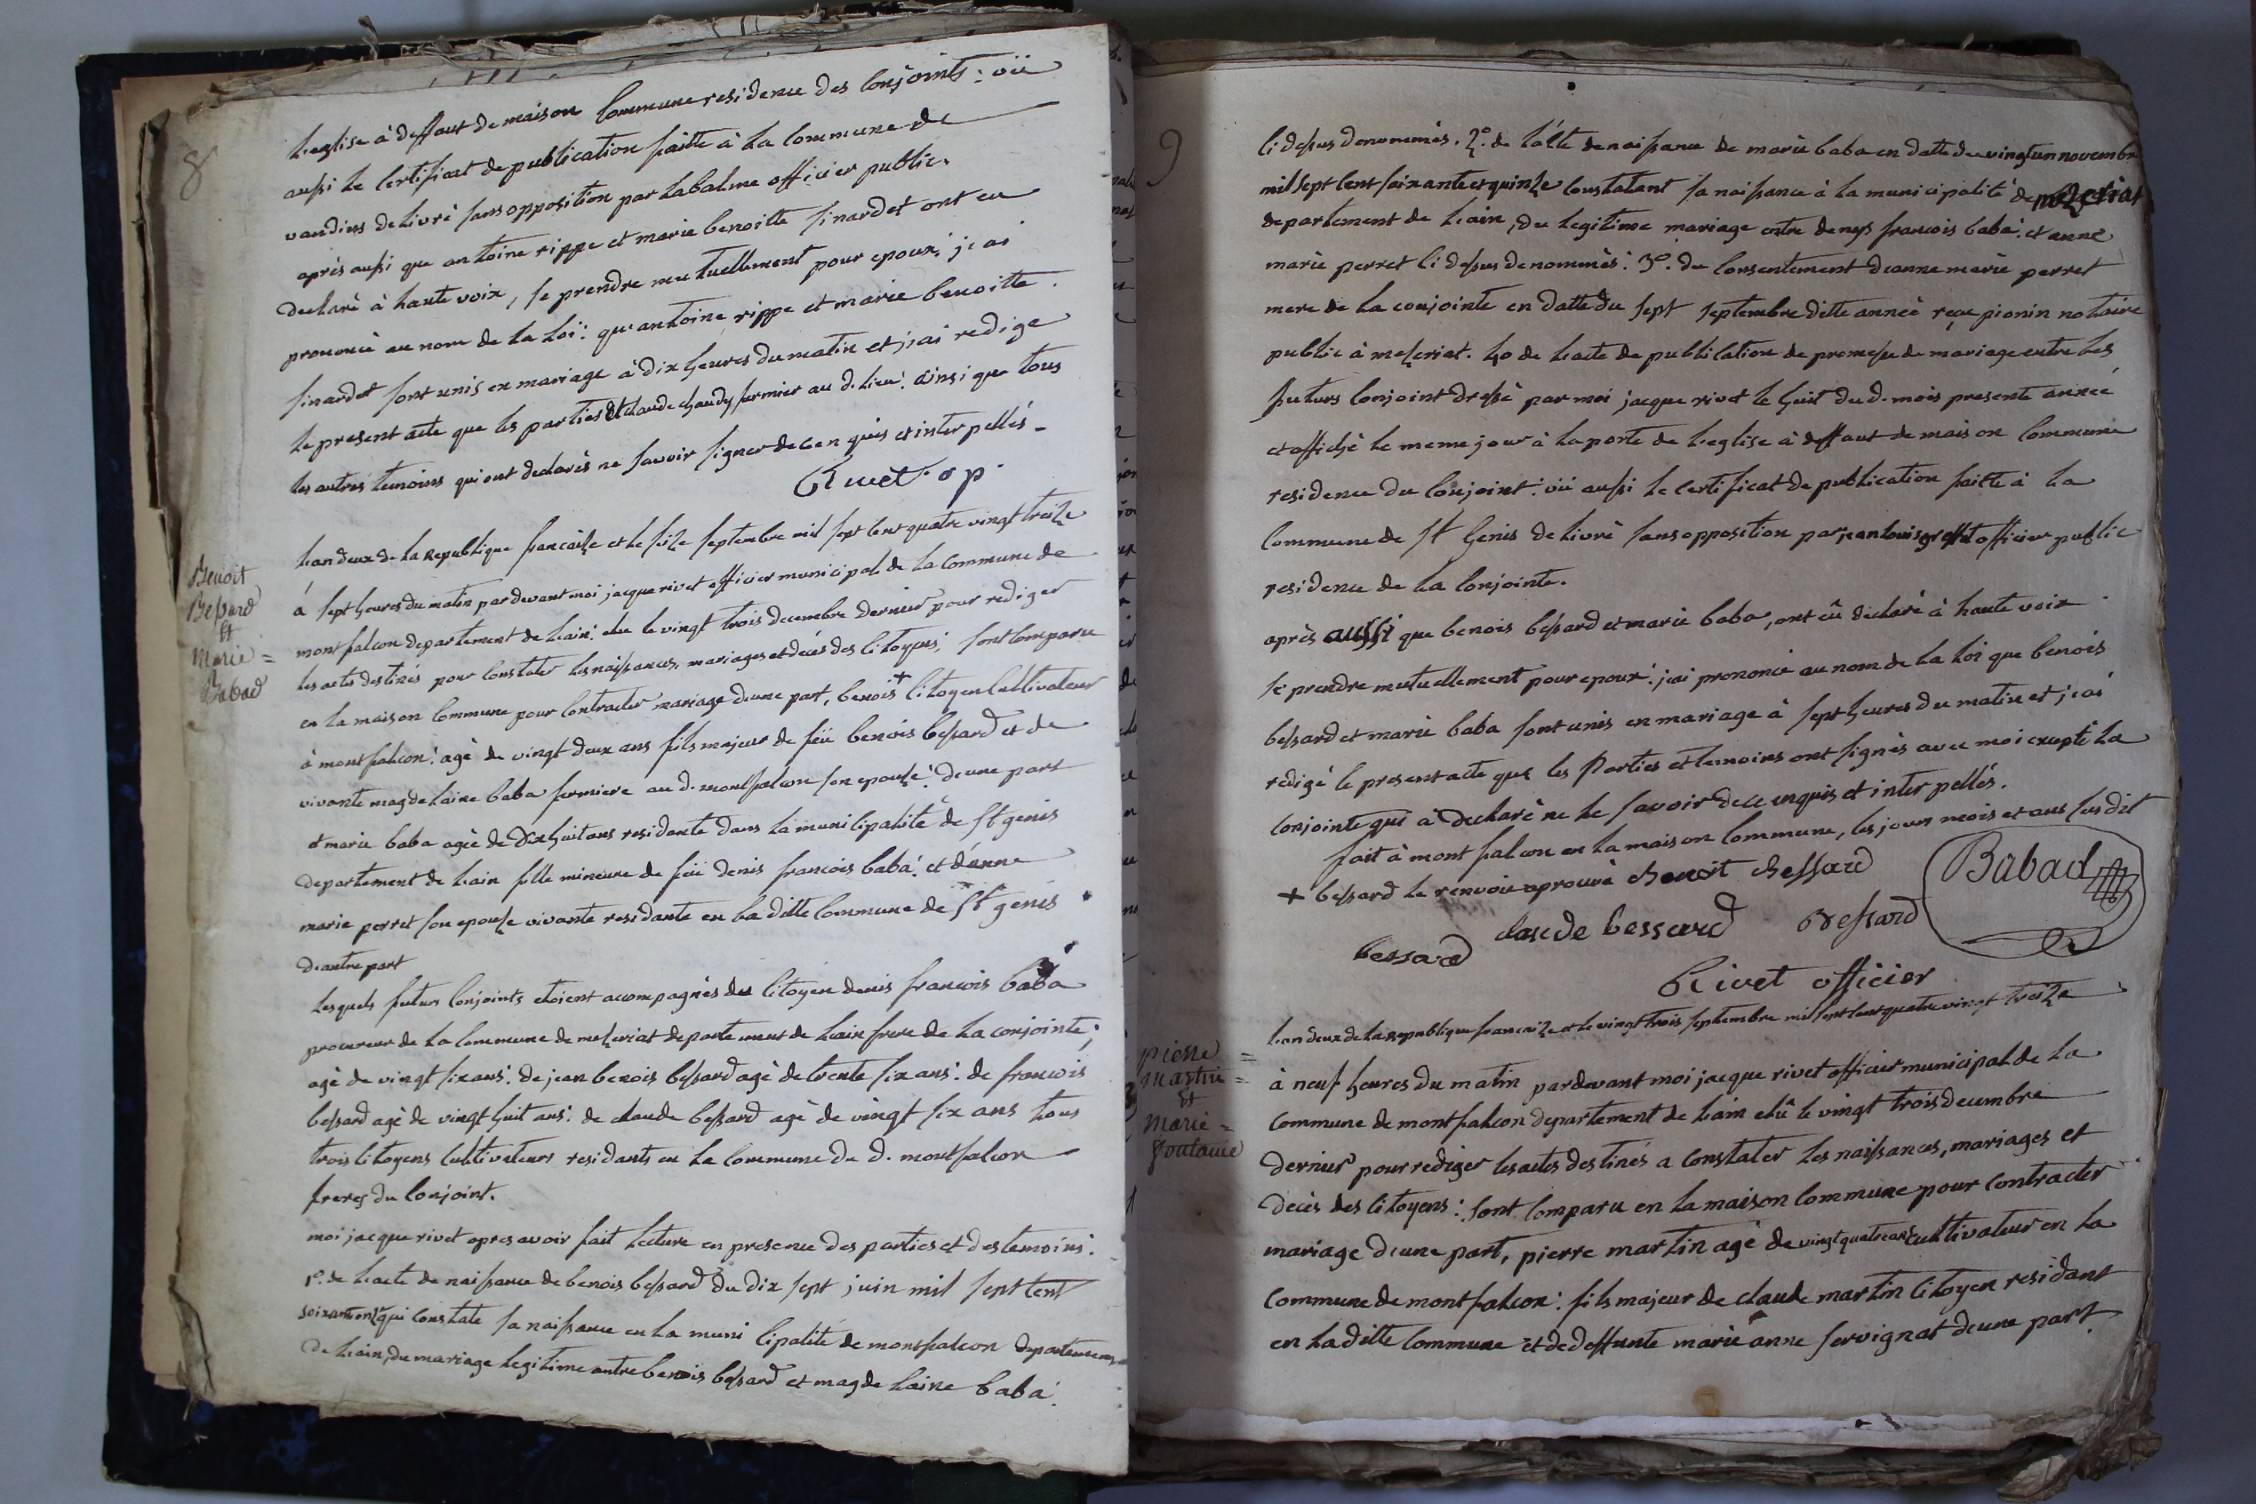 8
l'eglise à deffaut de maison Commune residence des Conjoints : vü
aussi le Certificat de publication faitte à la Commune de
vandins delivré sans opposition par labalme officier public.
après aussi que antoine rippe et marie benoitte sinardet ont eu
declaré à haute voix, se prendre mutuellement pour epoux, j'ai
prononcé au nom de la loï : qu'antoine rippe et marie benoitte
sinardet sont unis en mariage à dix heures du matin et j'ai redige
le present acte que les parties et claude chaudy fermier au d. lieu : ainsi que tous
les autres temoins qui ont declarés ne savoir signer de ce en quis et interpellés -
Rivet o p
Benoit
Bessard
et
Marie =
Babad
l'an deux de la Republique francaize et le seize septembre mil sept cent quatre vingt treize
à sept heures du matin par devant moi jacque rivet officier municipal de la Commune de
montfalcon departement de l'ain : elu le vingt trois decembre dernier pour rediger
les actes destinés pour constater les naissances, mariages et décès des Citoyens, sont comparu
en la maison Commune pour contracter mariage d'une part, benois + Citoyen Cultivateur
à montfalcon : agé de vingt deux ans fils majeur de feü benois bessard et de
vivante magdelaine baba fermiere au d. montfalcon son epouze : d'une part
et marie baba agée de dix huit ans residante dans la municipalité de St genis
departement de l'ain fille mineure de feü denis francois baba : et d'anne
marie perret son epouse vivante residante en la ditte Commune de St genis
d'autre part
lesquels futurs Conjoints etoient acompagnés du Citoyen denis francois baba
procureur de la Commune de mezeriat departement de l'ain frere de la conjointe ;
agé de vingt six ans : de jean benois bessard agé de trente six ans : de francois
bessard agé de vingt huit ans : de claude bessard agé de vingt six ans tous
trois Citoyens Cultivateurs residants en la Commune de d. montfalcon
freres du Conjoint.
moi jacque rivet apres avoir fait lecture en presence des parties et des temoins :
1º. de l'acte de naissance de benois bessard du dix sept juin mil sept cent
soixante onze qui constate sa naissance en la municipalité de montfalcon departement
de l'ain, du mariage legitime entre benois bessard et magdelaine baba :
9
Ci dessus denommés. 2º. de l'acte de naissance de marie baba en datte du vingt un novembre
mil sept cent soixante et quinze Constatant sa naissance à la municipalité de mezeriat
departement de l'ain, du legitime mariage entre denys francois baba : et anne
marie perret Ci dessus denommés : 3º. du Consentement d'anne marie perret
mere de la conjointe en datte du sept septembre ditte année reçu pionin notaire
public à mezeriat. 4o de l'acte de publication de promesse de mariage entre les
futurs Conjoint dressé par moi jacque rivet le huit du d. mois presente année
et affiché le meme jour à la porte de l'eglise à deffaut de maison Commune
residence du Conjoint : vü aussi le Certificat de publication faitte à la
Commune de St Genis delivré sans opposition par jean louis officier public
residence de la Conjointe.
après aussi que benois bessard et marie baba, ont eû declaré à haute voix
se prendre mutuellement pour epoux : j'ai prononcé au nom de la loi que benois
bessard et marie baba sont unis en mariage à sept heures du matin et j'ai
redigé le present acte que les Parties et temoins ont signés avec moi excepté la
conjointe qui a declaré ne le savoir de ce enquis et interpellés.
fait à montfalcon en la maison Commune, les jours mois et ans susdit
+ bessard le renvoi aprouvé Benoit Bessard
Babad
bessard claude bessard Bessard
Rivet officier
pierre =
Martin =
et
Marie =
foutanie
l'an deux de la Republique francaize et le vingt trois septembre mil sept cent quatre vingt treize
à neuf heures du matin par devant moi jacque rivet officier municipal de la
Commune de montfalcon departement de l'ain elû le vingt trois decembre
dernier pour rediger les actes destinés a Constater les naissances, mariages et
decès des Citoyens : sont Comparu en la maison Commune pour Contracter
mariage d'une part, pierre martin agé de vingt quatre ans Cultivateur en la
Commune de montfalcon : fils majeur de claude martin Citoyen residant
en la ditte Commune et de deffunte marie anne servignat d'une part